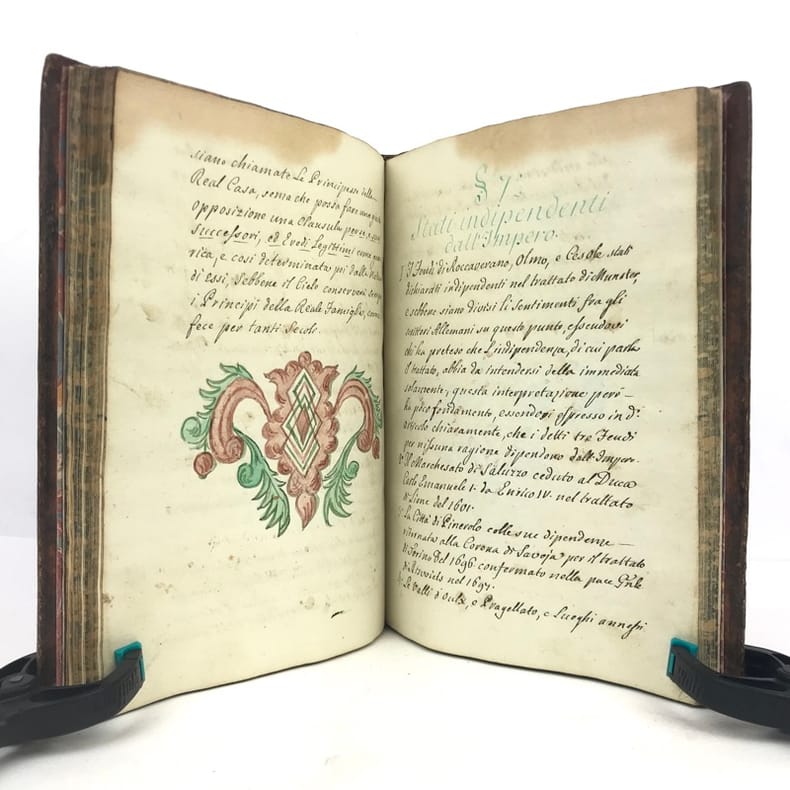 siano chiamate Le Principesse della
Real Casa, senza che possa fare
opposizione una Clausula per
successori, ed Eredi Legittimi come
rità, e così determinata poi dalla
di essi, sebbene il Cielo conservi sempre
i Principi della Reale Famiglia, come
fece per tanti Secoli.
§ 7.
Stati indipendenti
dall'Impero.
I Feudi di Roccaverano, Olmo, e Cesole stati
dichiarati indipendenti nel trattato di Munster,
e sebbene siano divisi li sentimenti fra gli
scrittori Allemani su questo punto, essendovi
chi ha preteso che L'indipendenza, di cui parla
il trattato, abbia da intendersi della immediata
solamente, questa interpretazione però
ha poco fondamento, essendosi espresso in d.º
articolo chiaramente, che i detti tre Feudi
per nissuna ragione dipendono dall'Impero.
Il Marchesato di Saluzzo ceduto al Duca
Carlo Emanuele I. da Enrico IV. nel trattato
di Lione del 1601.
La Città di Pinerolo colle sue dipendenze
ritornata alla Corona di Savoja per il trattato
di Torino del 1696 confermato nella pace Gnle
di Riswich nel 1697.
Le Valli d'Oulx, e Pragellato, e Luoghi annessi